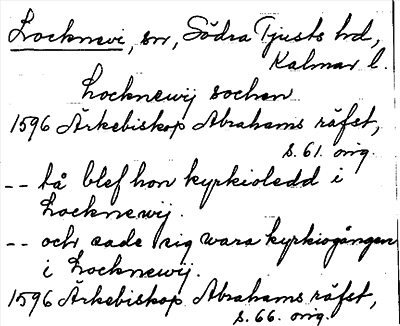 Locknevi, sn, Södra Tjusts hd,
Kalmar l.
Locknewij sochen
1596 Ärkebiskop Abrahams räfst,
s. 61. orig.
-- så blef hon kyrkioledd i
Locknewij.
-- och sade sig wara kyrkiogången
i Locknewij.
1596 Ärkebiskop Abrahams räfst,
s. 66. orig.